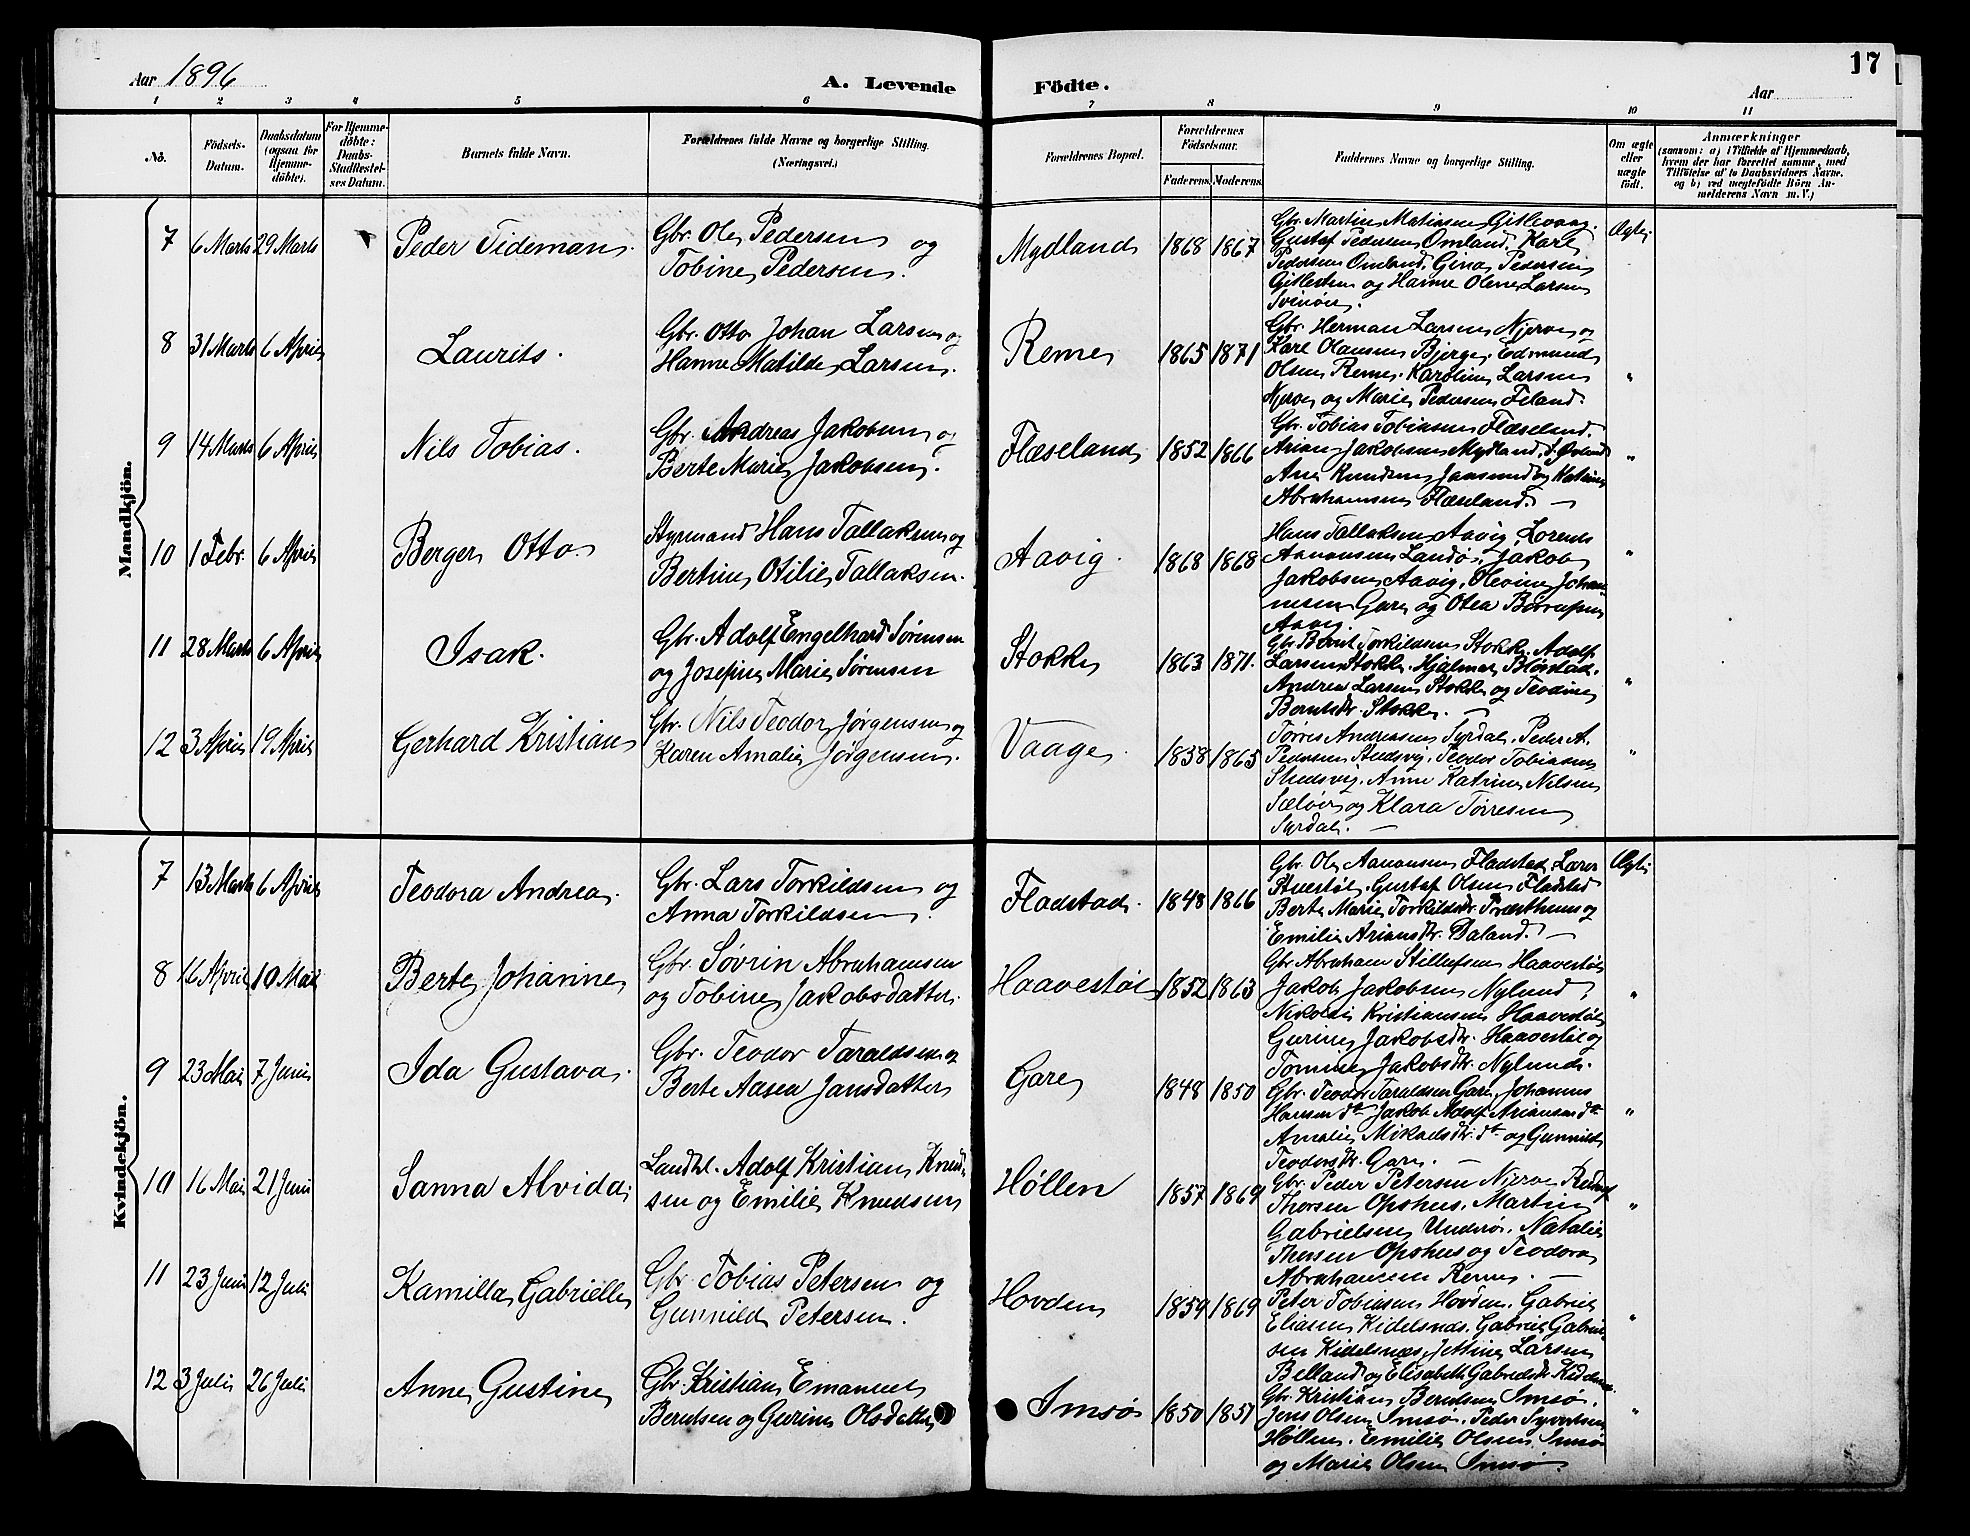 Aar 1896
A. Levende Födte.
17
Aar
1 2 3 4 5 6 7 8 9 10 11
No.
Födsels-Datum.
Daabsdatum (ogsaa for Hjemme-döbte).
For Hjemme-döbte: Daabs-Stadfæstel-ses Datum.
Barnets fulde Navn.
Forældrenes fulde Navne og borgerlige Stilling. (Næringsvei.)
Forældrenes Bopæl.
Forældrenes Födselsaar.
Faderens. Moderens.
Faddernes Navne og borgerlige Stilling.
Om ægte eller uægte födt.
Anmærkninger
(saasom: a) i Tilfælde af Hjemmedaab,
hvem der har forrettet samme, med
Tilföielse af to Daabsvidners Navne.
og b) ved uegtefödte Börn An-
melderens Navn m. V.)
Mandkjön.
7 6 Marts 29 Marts Peder Tideman. Gbr. Ole Pedersen og Tobine Pedersen. Mydland 1868 1867
Gbr. Martin Matiasen Gitlevaag.
Gustaf Pedersen Omland. Karl
Pedersen Omland. Gina Pedersen
Gitlesten og Hanne Oline Larsen
Svinøer.
Ægte
8 31 Marts 6 April Laurits. Gbr. Otto Johan Larsen og Hanne Matilde Larsen. Reme 1865 1871
Gbr. Herman Larsen Njerve og
Karl Olausen Bjerge. Edmund
Olsen Reme. Karoline Larsen
Njerve og Marie Pedersen Feland.
"
9 14 Marts 6 April Nils Tobias. Gbr. Andreas Jakobsen og Berte Marie Jakobsen. Flæseland 1852 1866
Gbr. Tobias Tobiasen Flæseland.
Arian Jakobsen Mydland,
Ane Knudsen Jaasund og Katrine
Abrahamsen Flæseland. —
"
10 1 Febr. 6 April Berger Otto. Styrmand Hans Tallaksen og Bertine Otilie Tallaksen. Aavig. 1868 1868
Hans Tallaksen Aavig, Lorents
Aanonsen Landø. Jakob
Jakobsen Aavig. Olevine Johan-
nesen Gare og Otea Børrufsen
Aavig.
"
11 28 Marts 6 April Isak. Gbr. Adolf Engelhard Sørensen og Josefine Marie Sørensen Stokke 1863 1871.
Gbr Bernt Torkildsen Stokke. Adolf
Larsen Stokke. Hjalmar Bløstad.
Andrea Larsen Stokke og Teodine
Berntsdr. Stokke. —
"
12 3 April 19 April Gerhard Kristian Gbr. Nils Teodor Jørgensen og Karen Amalie Jørgensen. Vaage. 1858 1865
Tørris Andreasen Syrdal. Peder A.
Pedersen Skedsvig. Teodor Tobiasen
Skedsvig. Anne Katrine Nilsen
Sæløer og Klara Tørresen
Syrdal. —
"
Kvindekjön.
7 13 Marts 6 April Teodora Andrea. Gbr. Lars Torkildsen og Anna Torkildsen. Fladstad. 1848 1866
Gbr. Ole Aanonsen Fladstad, Lærer
Stuestøl. Gustaf Olsen Fladstad
Berte Marie Torkildsdr. Presthuus og
Emilie Ariansdr. Baland. —
Ægte
8 16 April 10 Mai Berte Johanne Gbr. Søvrin Abrahamsen og Tobine Jakobsdatter. Haavestøl 1852 1863
Gbr Abraham Stillufsen Haavestøl
Jakob Jakobsen Nylund,
Nikolai Kristiansen Haavestøl,
Gurine Jakobsdr. Haavestøl og
Tomine Jakobsdr. Nylund.
"
9 23 Mai 7 Juni Ida Gustava. Gbr. Teodor Taraldsen og Berte Aasea Jansdatter Gare 1848 1850
Gbr. Teodor Taraldsen Gare, Johannes
Hansen do Jakob Adolf Ariansen do
Amalie Mikaelsdr. do og Gunnild
Teodorsdr. Gare. —
"
10 16 Mai 21 Juni Sanna Alvida. Landhl. Adolf Kristian Knud-sen og Emilie Knudsen Høllen 1857 1869
Gbr. Peder Petersen Njerve Rudolf
Thorsen Opshus. Martin
Gabrielsen Underø. Natalie
Thorsen Opshus og Teodora
Abrahamsen Reme. —
"
11 23 Juni 12 Juli Kamilla Gabrielle Gbr. Tobias Petersen og Gunnild Petersen. Hovden 1859 1869
Peter Tobiasen Hovden. Gabriel
Eliasen Kidelsnæs. Gabriel Gabriel-
sen Kidelsnæs, Jettine Larsen
Belland og Elisabeth Gabrielsdr.
"
12 3 Juli 26 Juli Anne Gustine Gbr. Kristian Emanuel Berntsen og Gurine Olsdatter Imsø 1850 1857
Gbr. Kristian Berntsen Imsø.
Jens Olsen Imsø. Peder Syvertsen
Høllen. Emilie Olsen Imsø
og Marie Olsen Imsø.
"